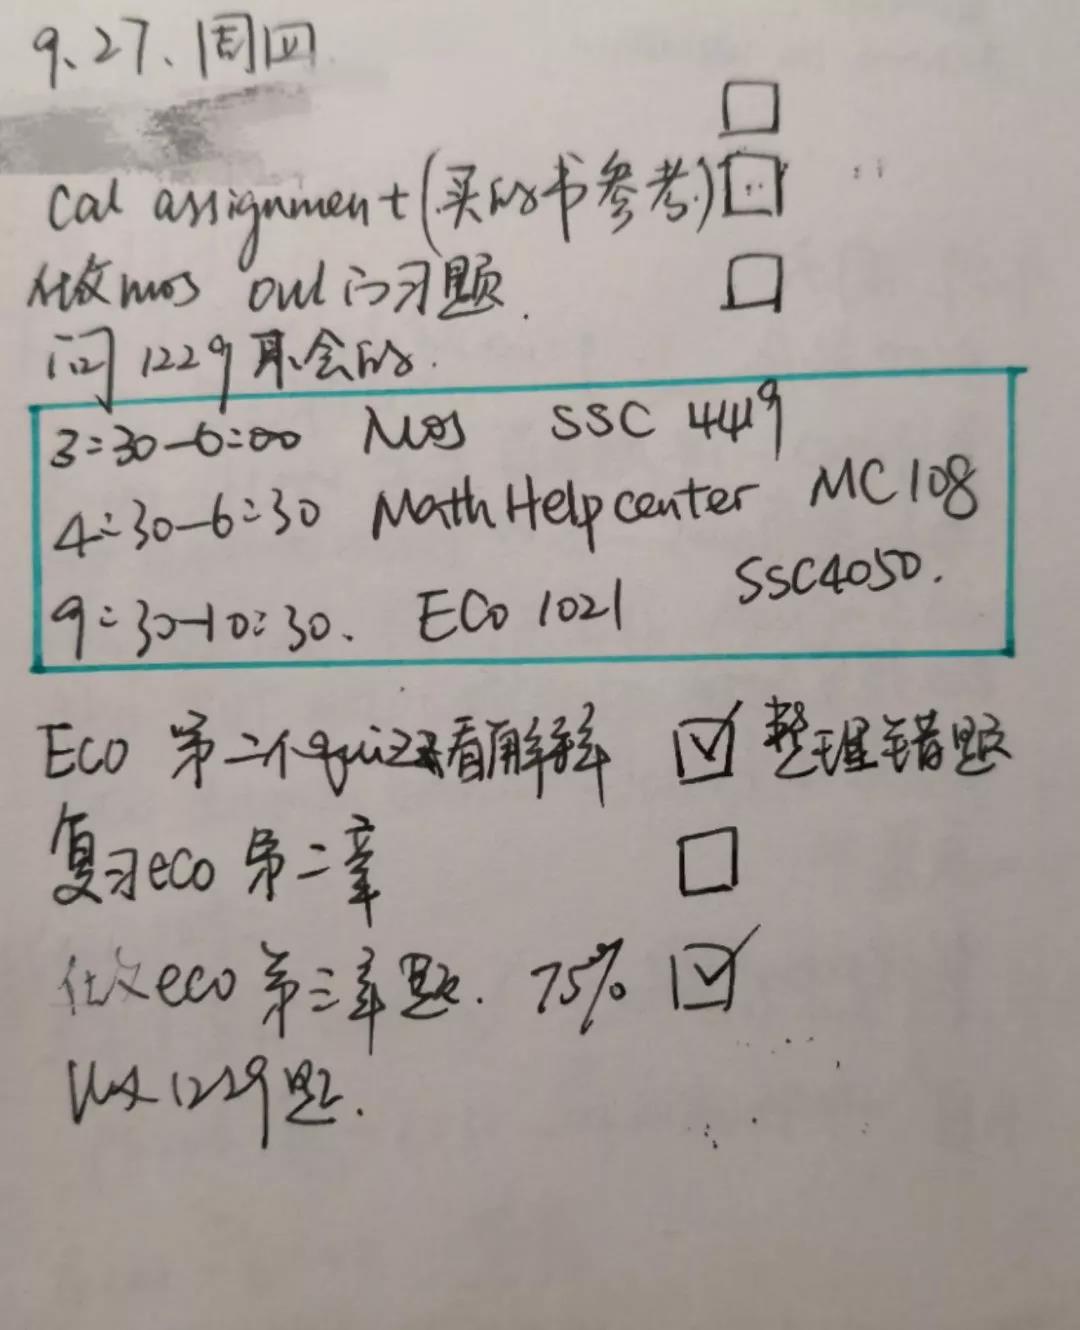 9.27、周四
Cal assignment (买的书参考)
做mos owl的习题.
问1229不会的.
3:30-6:00 Mos SSC 4119
4:30-6:30 Math Help center MC 108
9:30-10:30. ECO 1021 SSC4050.
ECO 第二个quiz 看解释 整理错题
复习eco 第二章
做eco 第三章题. 75%
做1229题.